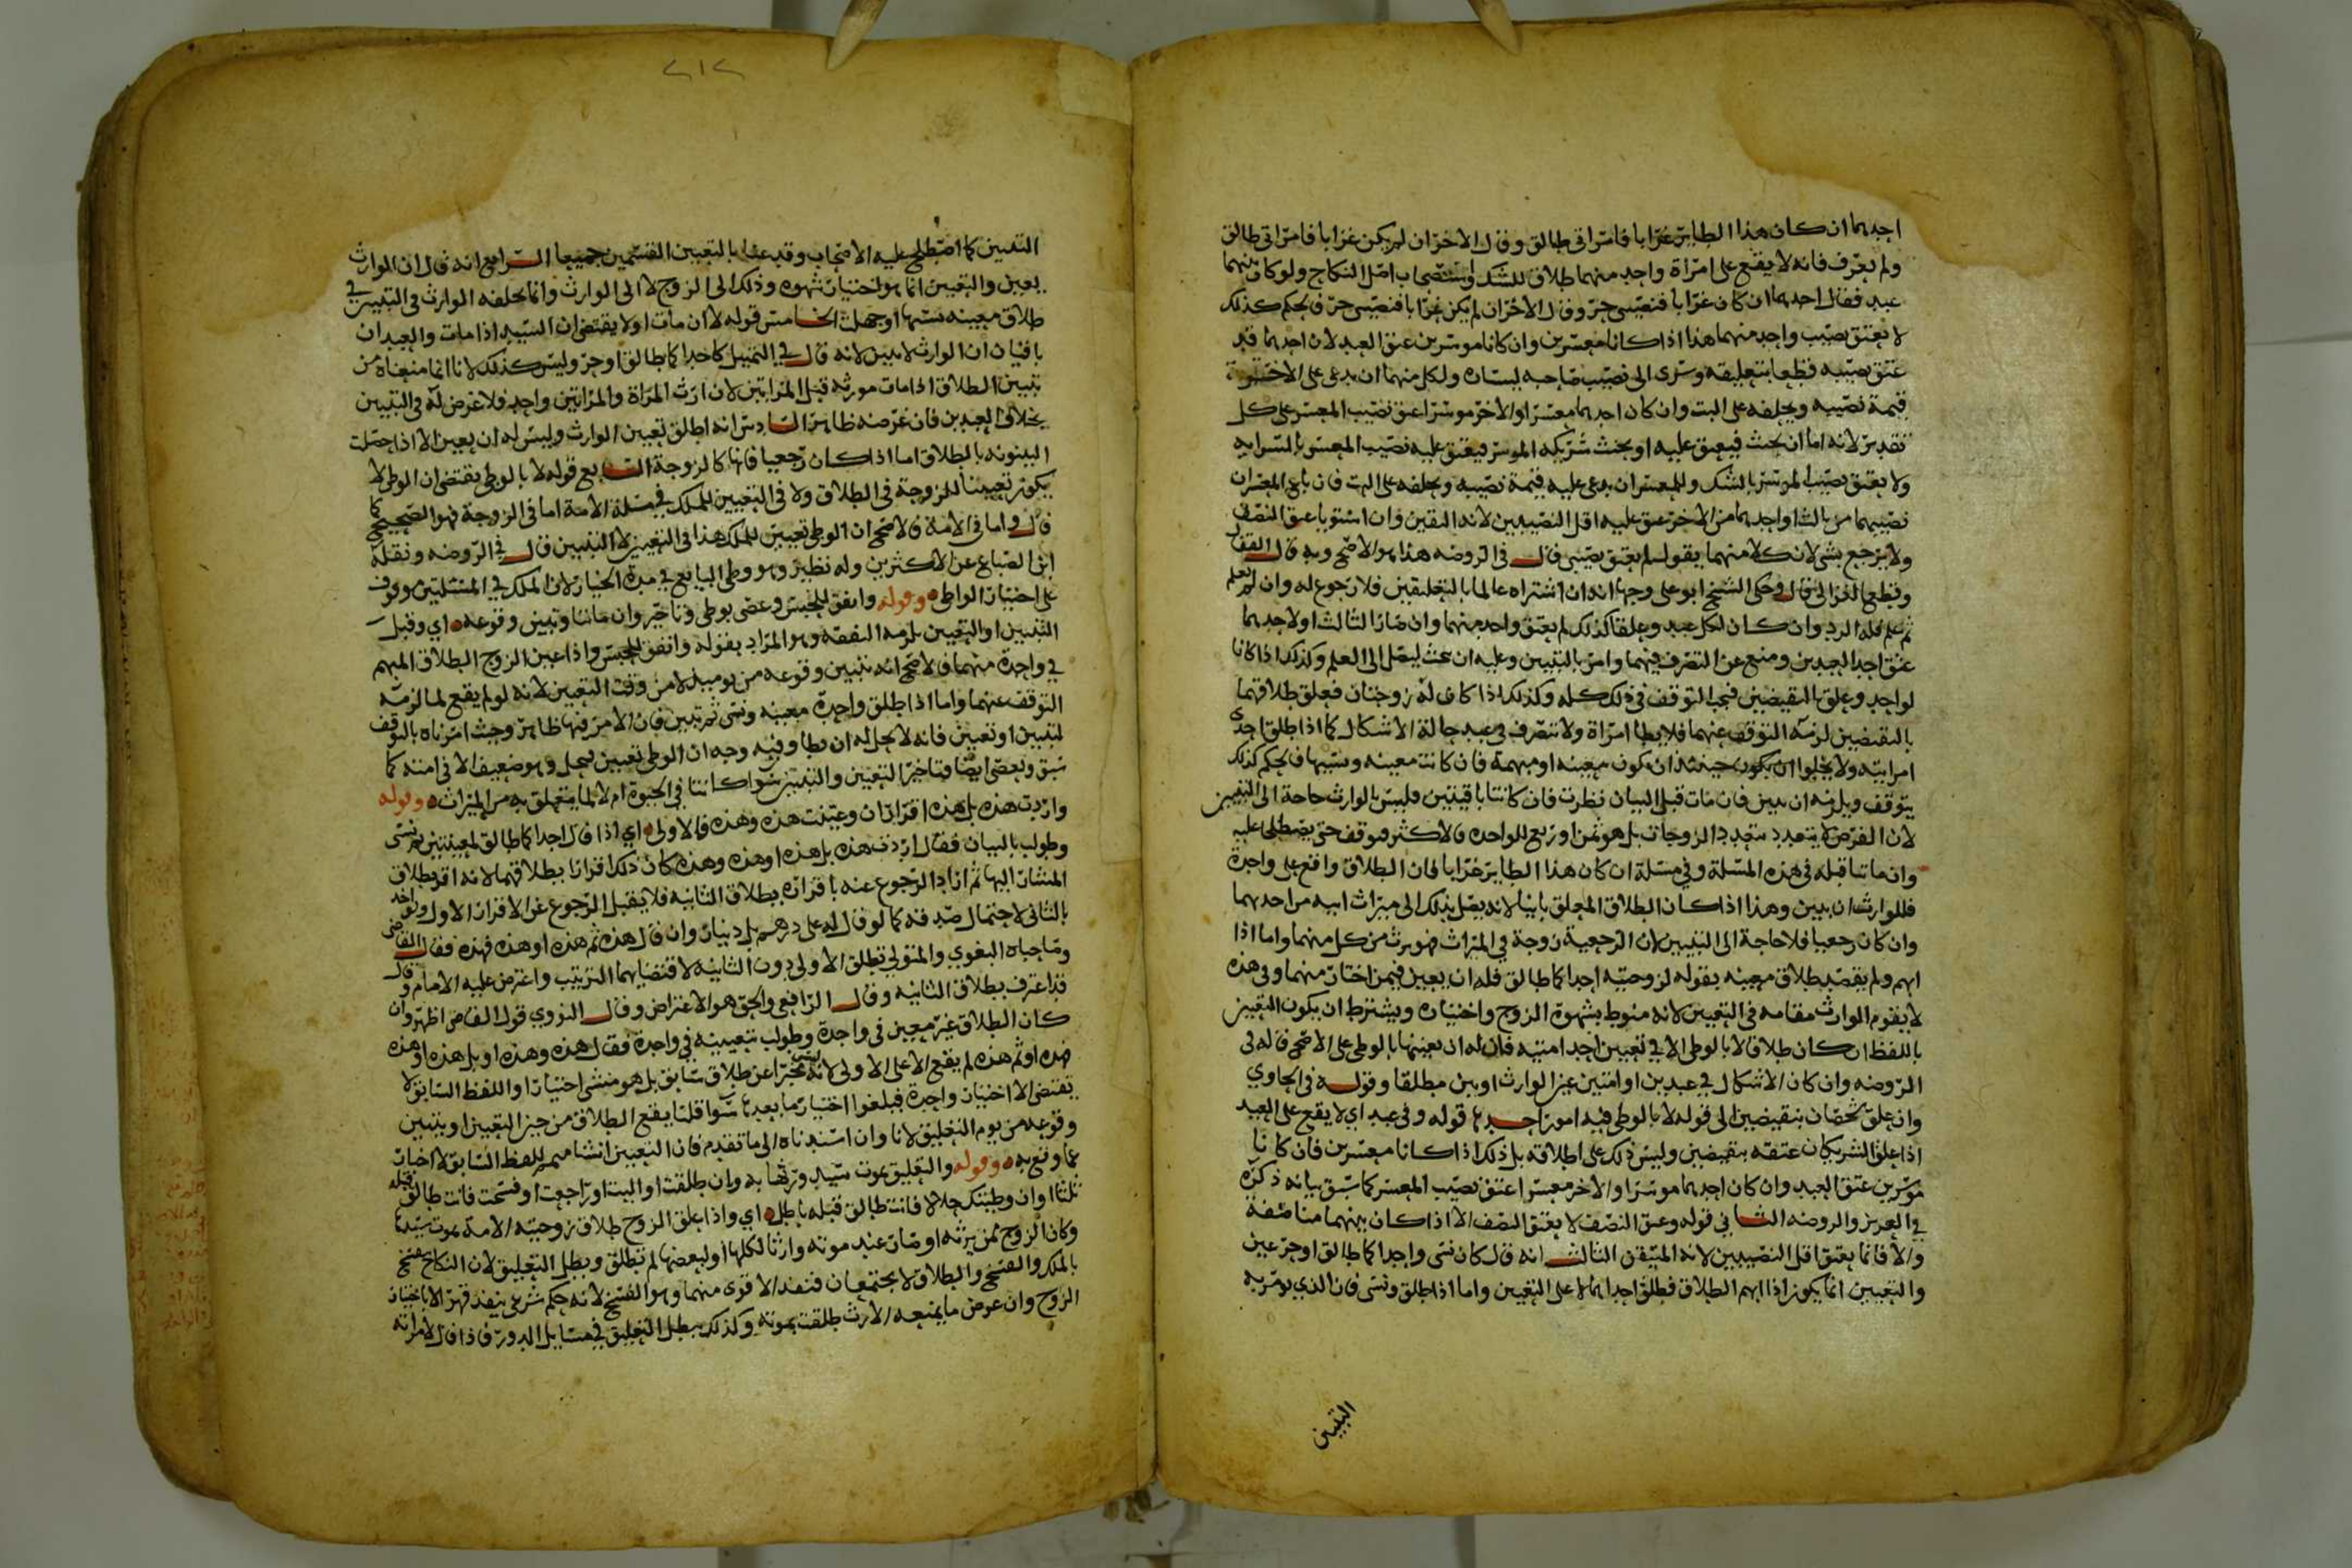 احدهما ان كان هذا الطاير غرابا فامراتي طالق وقال الاخر ان لم يكن غرابا فامراتي طالق
ولم يعرف فانه لا يقع على امراة واحد منهما طلاق للشك واستصحاب اصل النكاح ولو كان بينهما
عبد فقال احدهما ان كان غرابا فنصيبي حر وقال الاخر ان لم يكن غرابا فنصيبي حر فالحكم كذلك
لا يعتق نصيب واحد منهما هذا اذا كانا معسرين وان كانا موسرين عتق العبد لان احدهما قد
عتق نصيبه قطعا بتعليقه وسرى الى نصيب صاحبه ليساره ولكل منهما ان يدعي على الاخر
قيمة نصيبه ويحلفه على البت وان كان احدهما معسرا والاخر موسرا عتق نصيب المعسر على كل
تقدير لانه اما ان يحنث فيعتق عليه او يحنث شريكه الموسر فيعتق عليه نصيب المعسر بالسراية
ولا يعتق نصيب الموسر بالشك وللمعسر ان يدعي عليه قيمة نصيبه ويحلفه على البت فان باع المعسران
نصيبهما من ثالث او احدهما من الاخر عتق عليه اقل النصيبين لانه اليقين وان استويا عتق النصف
ولا يرجع بشي لان كلا منهما يقول لم يعتق نصيبي قال في الروضه هذا هو الاصح وبه قال القفال
وقطع الغزالي قال وحكى الشيخ ابو علي وجها انه ان اشتراه عالما بالتعليقين فلا رجوع له وان لم يعلم
ثم علم فله الرد وان كان لكل عبد وعلقا كذلك لم يعتق واحد منهما وان صارا لثالث او لاحدهما
عتق احد العبدين ومنع من التصرف فيهما وامر بالتبيين وعليه ان يبحث ليصل الى العلم وكذلك اذا كانا
لواحد وعلق بالنقيضين فيجب التوقف في ذلك كله وكذلك اذا كان له زوجتان فعلق طلاقهما
بالنقيضين لزمه التوقف عنهما فلا يطا امراة ولا يتصرف في عبد حالة الاشكال كما اذا طلق احدى
امراتيه ولا يخلوا ان يكون حينئذ ان يكون معينه او مبهمة فان كانت معينه ونسيها فالحكم كذلك
يتوقف ويلزمه ان يبين فان مات قبل البيان نظرت فان كانتا باقيتين فليس بالوارث حاجة الى التعيين
لان الفرض لا يتعدد بتعدد الزوجات بل هو ثمن او ربع للواحده فالاكثر فيوقف حتى يصطلحا عليه
وان ماتتا قبله في هذه المسئلة وفي مسئلة ان كان هذا الطاير غرابا فان الطلاق واقع على واحدة
فللوارث ان يبين وهذا اذا كان الطلاق المعلق باينا لانه يصل بذلك الى ميراث ابيه من احدهما
وان كان رجعيا فلا حاجة الى التبيين لان الرجعية زوجة في الميراث فهو يرث من كل منهما واما اذا
ابهم ولم يقصد طلاق معينه بقوله لزوجتيه احداكما طالق فله ان يعين فيمن اختار منهما وفي هذه
لا يقوم الوارث مقامه في التعيين لانه منوط بشهوة الزوج واختياره ويشترط ان يكون التعيين
باللفظ ان كان طلاق لا بالوطي الا في تعيين احدا امتيه فان له ان يعينها بالوطي على الاصح قاله في
الروضه وان كان الاشكال في عبدين او امتين عين الوارث او بين مطلقا وقوله في الحاوي
وان علق شخصان بنقيضين الى قوله لا بالوطي فيه امور احدها قوله وفي عبد اي لا يقع على العبد
اذا علق الشريكان عتقه بنقيضين وليس ذلك على اطلاقه بل ذلك اذا كانا معسرين فان كانا
موسرين عتق العبد وان كان احدهما موسرا والاخر معسرا عتق نصيب المعسر كما سبق بيانه ذكره
في العزيز والروضه الثاني قوله وعتق النصف لا يعتق النصف الا اذا كان بينهما مناصفة
والا فانما يعتق اقل النصيبين لانه المتيقن الثالث انه قال كان نسي واحداكما طالق او حر عين
والتعيين انما يكون اذا ابهم الطلاق فطلق احداهما لا على التعيين واما اذا طلق ونسي فان الذي يومر به
التبيين
٢١٢
التبيين كما اصطلح عليه الاصحاب وقد عنى بالتعيين القسمين جميعا الرابع انه قال ان الوارث
يعين والتعيين انما هو اختيار شهوه وذلك الى الزوج لا الى الوارث وانما يخلفه الوارث في التبيين في
طلاق معينه نسيها او جهلت الخامس قوله لا ان مات اولا يقتضي ان السيد اذا مات والعبدان
باقيان ان الوارث لا يبين لانه قال في التمثيل كاحداكما طالق او حر وليس كذلك لانا انما منعناه من
تبيين الطلاق اذا مات مورثه قبل المراتين لان ارث المراة والمراتين واحد فلا غرض له في التبيين
بخلاف العبدين فان غرضه ظاهر السادس انه اطلق تعيين الوارث وليس له ان يعين الا اذا حصلت
البينونه بالطلاق اما اذا كان رجعيا فانها كالزوجة السابع قوله لا بالوطي يقتضي ان الوطي لا
يكون تعيينا للزوجة في الطلاق ولا في التعيين للملك في مسئلة الامة اما في الزوجة فهو الصحيح كما
قال واما في الامة فالاصح ان الوطي تعيين للملك هذا في التعيين لا التبيين قال في الروضه ونقله
ابن الصباغ عن الاكثرين وله نظير وهو وطي البايع في مدة الخيار لان الملك في المسئلتين موقوف
على اختيار الواطي وقوله وانفق للحبس وعصى بوطي وتاخير وان ماتتا وتبين وقوعه اي وقبل
التبيين او التعيين يلزمه النفقة وهو المراد بقوله وانفق للحبس واذا عين الزوج الطلاق المبهم
في واحدة منهما فالاصح انه تبين وقوعه من يوميذ لا من وقت التعيين لانه لو لم يقع لما لزمه
التوقف عنهما واما اذا طلق واحدة معينه ونسي ثم تبين فان الامر فيها ظاهر وحيث امرناه بالتوقف
لتبيين او تعيين فانه لا يحل له ان يطا وفيه وجه ان الوطي تعيين فيحل وهو ضعيف الا في امته كما
سبق ويعصي ايضا بتاخير التعيين والتبيين سوا كانتا في الحيوة ام لا لما يتعلق به من الميراث وقوله
واردت هذه بل هذه اقراران وعينت هذه وهذه فالاولى اي اذا قال احداكما طالق لمعينتين ثم نسي
وطولب بالبيان فقال اردت هذه بل هذه او هذه وهذه كان ذلك اقرارا بطلاقهما لانه اقر بطلاق
المشار اليها ثم اراد الرجوع عنه باقراره بطلاق الثانيه فلا يقبل الرجوع عن الاقرار الاول ويواخذ
بالثاني لاحتمال صدقه كما لو قال له علي درهم بل دينار وان قال هذه ثم هذه او هذه فهذه فقال القاضي
وصاحباه البغوي والمتولي تطلق الاولى دون الثانيه لاقتضايهما الترتيب واعترض عليه الامام وقال
قد اعترف بطلاق الثانيه وقال الرافعي والحق هو الاعتراض وقال النووي قول القاضي اظهر وان
كان الطلاق غير معين في واحدة وطولب بتعيينه في واحدة فقال هذه وهذه او بل هذه او هذه
فهذه او ثم هذه لم يقع الا على الاولى لانه ليس مخبرا عن طلاق سابق بل هو منشي اختيارا واللفظ السابق لا
يقتضي الا اختيار واحدة فيلغوا اختيار ما بعدها سوا قلنا يقع الطلاق من حين التعيين او يتبين
وقوعه من يوم التعليق لانا وان اسندناه الى ما تقدم فان التعيين انشا متمم للفظ السابق لا اخبار
عما وقع به وقوله والتعليق بموت سيد ورثها به وان طلقت او البت او راجعت او فسخت فانت طالق قبله
ثلثا او ان وطيتك حلالا فانت طالق قبله باطل اي واذا علق الزوج طلاق زوجته الامة بموت سيدها
وكان الزوج ممن يرثه او صار عند موته وارثا لكلها او لبعضها لم تطلق وبطل التعليق لان النكاح يفسخ
بالملك والفسخ والطلاق لا يجتمعان فنفذ الاقوى منهما وهو الفسخ لانه حكم شرعي ينفذ قهرا لا باختيار
الزوج وان عرض ما يمنعه الارث طلقت بموته وكذلك يبطل التعليق في مسايل الدور فاذا قال لامراته